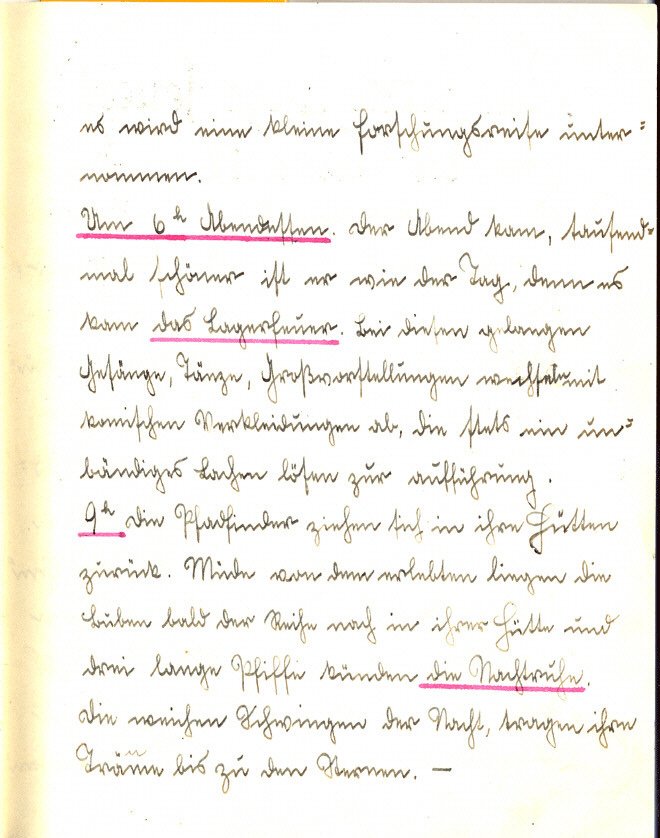 es wird eine kleine Forschungsreise unter=
nommen.
Um 6 h Abendessen. Der Abend kam, tausend=
mal schöner ist er wie der Tag, denn es
kam das Lagerfeuer. Bei diesen gelangen
Gesänge, Tänze, Großvorstellungen wechseln mit
komischen Verkleidungen ab, die stets ein un=
bändiges Lachen lösen zur aufführung.
9 h Die Pfadfinder ziehen sich in ihre Hütten
zurück. Müde von dem erlebten liegen die
Buben bald der Reihe nach in ihrer Hütte und
drei lange Pfiffe künden die Nachtruhe.
Die weichen Schwingen der Nacht, tragen ihre
Träume bis zu den Sternen. —